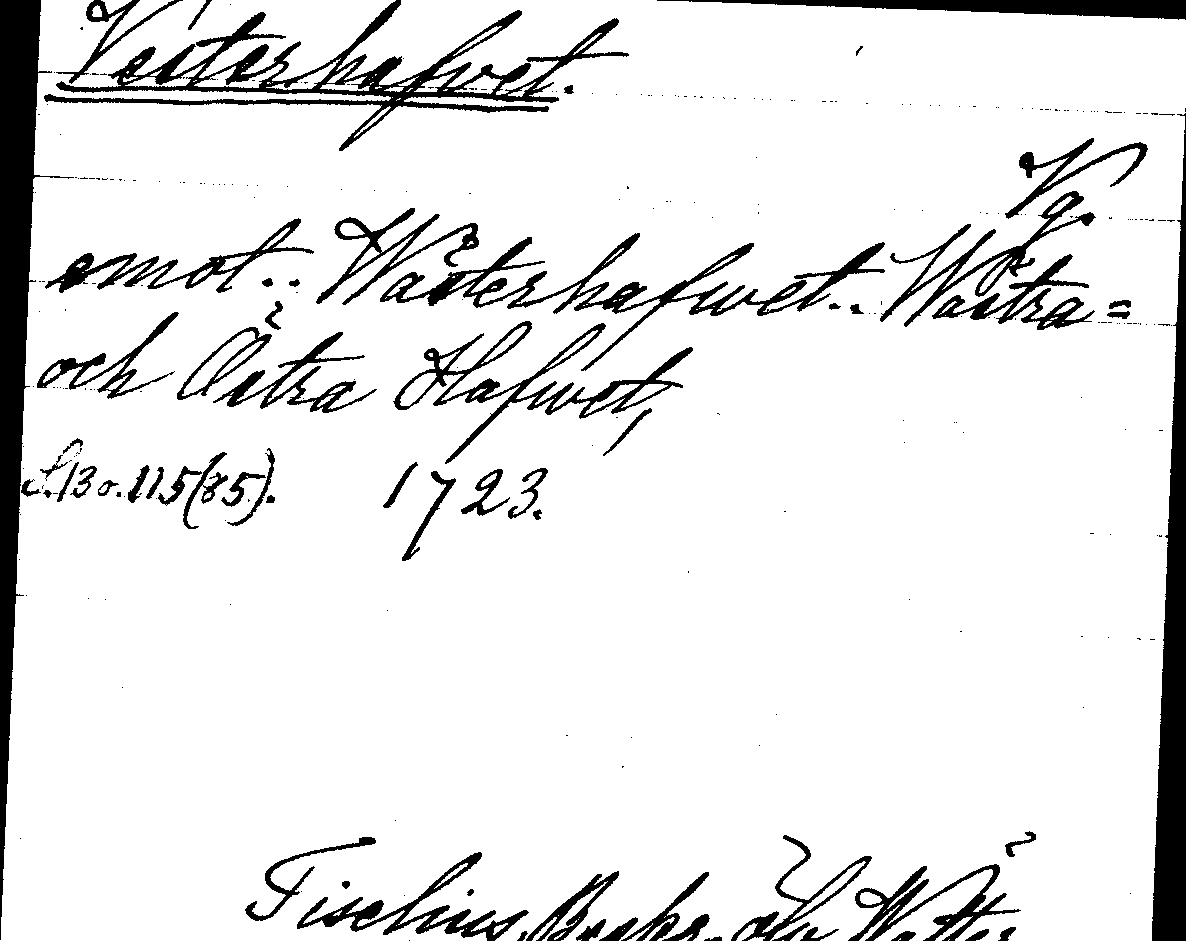 Vesterhafvet.
Vg.
emot.. Wästerhafwet.. Wästra=
och Östra Hafwet,
S. 13 o. 115 (85). 1723.
Tiselius, Beskr. öfv. Wätter